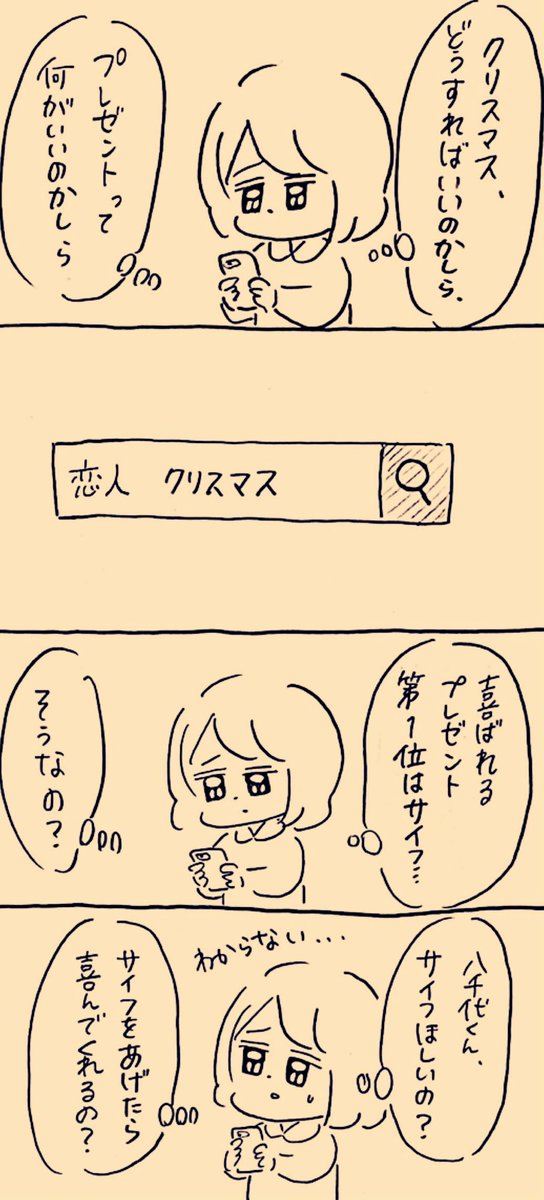 クリスマス、
どうすればいいのかしら、
プレゼントって
何がいいのかしら
恋人 クリスマス
喜ばれる
プレゼント
第1位はサイフ…
そうなの？
わからない...
八千代くん、
サイフほしいの？
サイフをあげたら
喜んでくれるの？